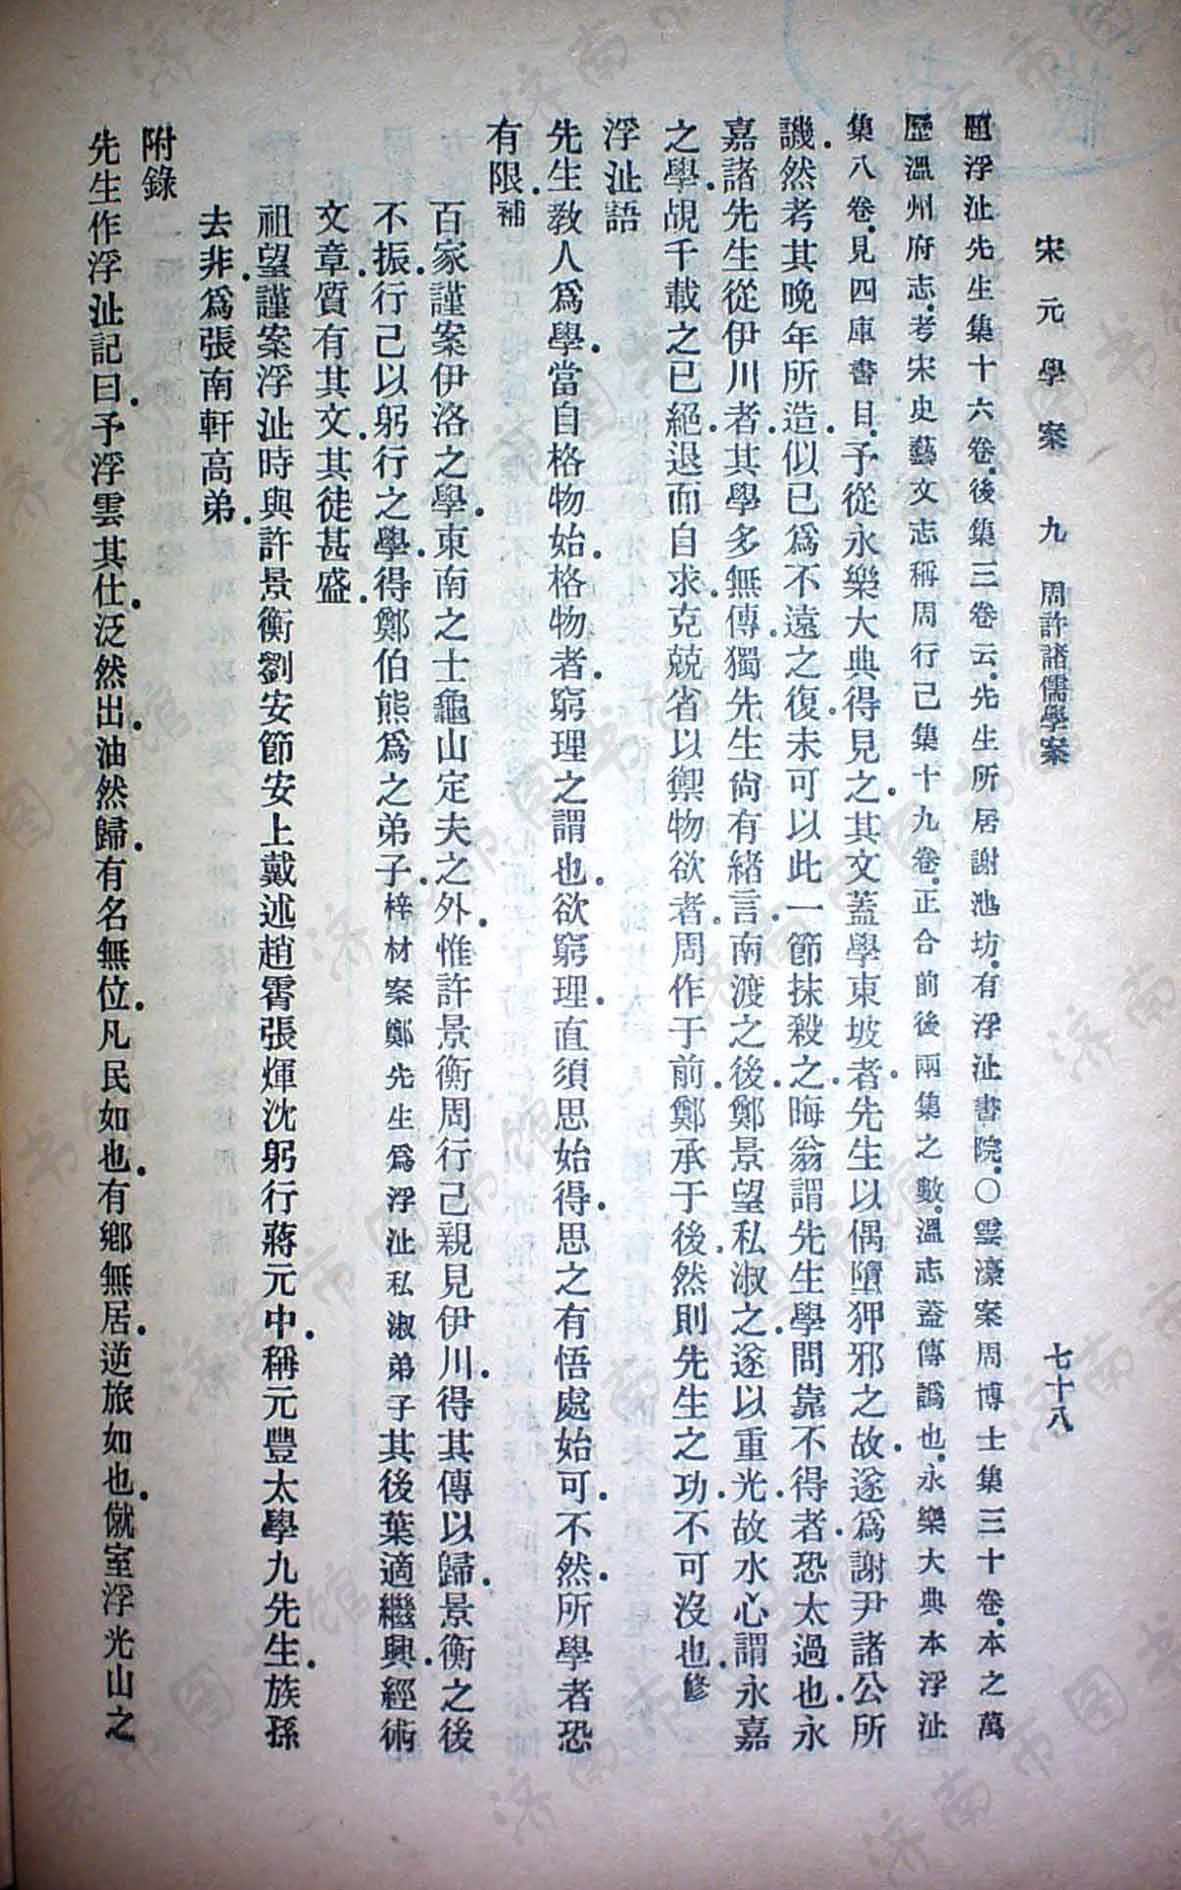 宋元學案 九 周許諸儒學案 七十八
題浮沚先生集十六卷.後集三卷云.先生所居謝池坊.有浮沚書院.○雲濠案周博士集三十卷.本之萬
歷溫州府志.考宋史藝文志稱周行己集十九卷.正合前後兩集之數.溫志蓋傳譌也.永樂大典本浮沚
集八卷.見四庫書目.予從永樂大典得見之.其文蓋學東坡者.先生以偶墮狎邪之故.遂爲謝尹諸公所
譏.然考其晚年所造.似已爲不遠之復.未可以此一節抹殺之.晦翁謂先生學問靠不得者.恐太過也.永
嘉諸先生從伊川者.其學多無傳.獨先生尙有緒言.南渡之後.鄭景望私淑之.遂以重光.故水心謂永嘉
之學.覘千載之已絕.退而自求.克兢省以禦物欲者.周作于前.鄭承于後.然則先生之功.不可沒也.修
浮沚語
先生教人爲學.當自格物始.格物者.窮理之謂也.欲窮理.直須思始得.思之有悟處始可.不然.所學者恐
有限.補
百家謹案伊洛之學.東南之士.龜山定夫之外.惟許景衡周行己親見伊川.得其傳以歸.景衡之後
不振.行己以躬行之學.得鄭伯熊爲之弟子.梓材案鄭先生爲浮沚私淑弟子其後葉適繼興.經術
文章.質有其文.其徒甚盛.
祖望謹案浮沚時與許景衡劉安節安上戴述趙霄張煇沈躬行蔣元中.稱元豐太學九先生.族孫
去非.爲張南軒高弟.
附錄
先生作浮沚記曰.予浮雲其仕.泛然出.油然歸.有名無位.凡民如也.有鄉無居.逆旅如也.僦室浮光山之